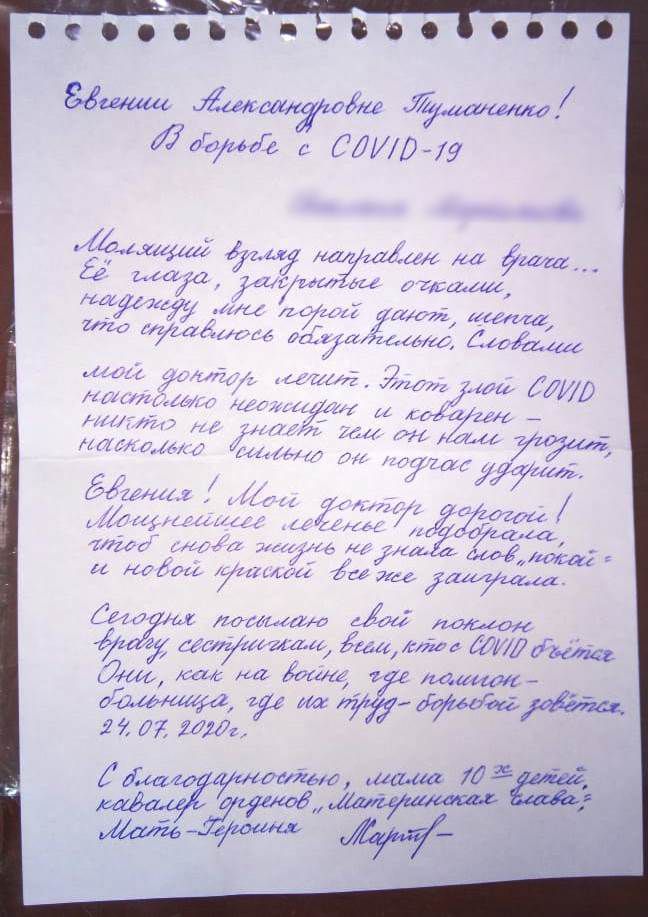 Евгении Александровне Туманенко!
В борьбе с COVID-19
Молящий взгляд направлен на врача...
Её глаза, закрытые очками,
надежду мне порой дают, шепча,
что справлюсь обязательно. Словами
мой доктор лечит. Этот злой COVID
настолько неожидан и коварен –
никто не знает чем он нам грозит,
насколько сильно он подчас ударит.
Евгения! Мой доктор дорогой!
Мощнейшее леченье подобрала,
чтоб снова жизнь не знала слов „покой"
и новой краской все же заиграла.
Сегодня посылаю свой поклон
врачу, сестричкам, всем, кто с COVID бьётся
Они, как на войне, где полигон-
больница, где их труд-борьбой зовётся.
24.07.2020г.
С благодарностью, мама 10х детей,
кавалер орденов „Материнская слава",
Мать-Героиня